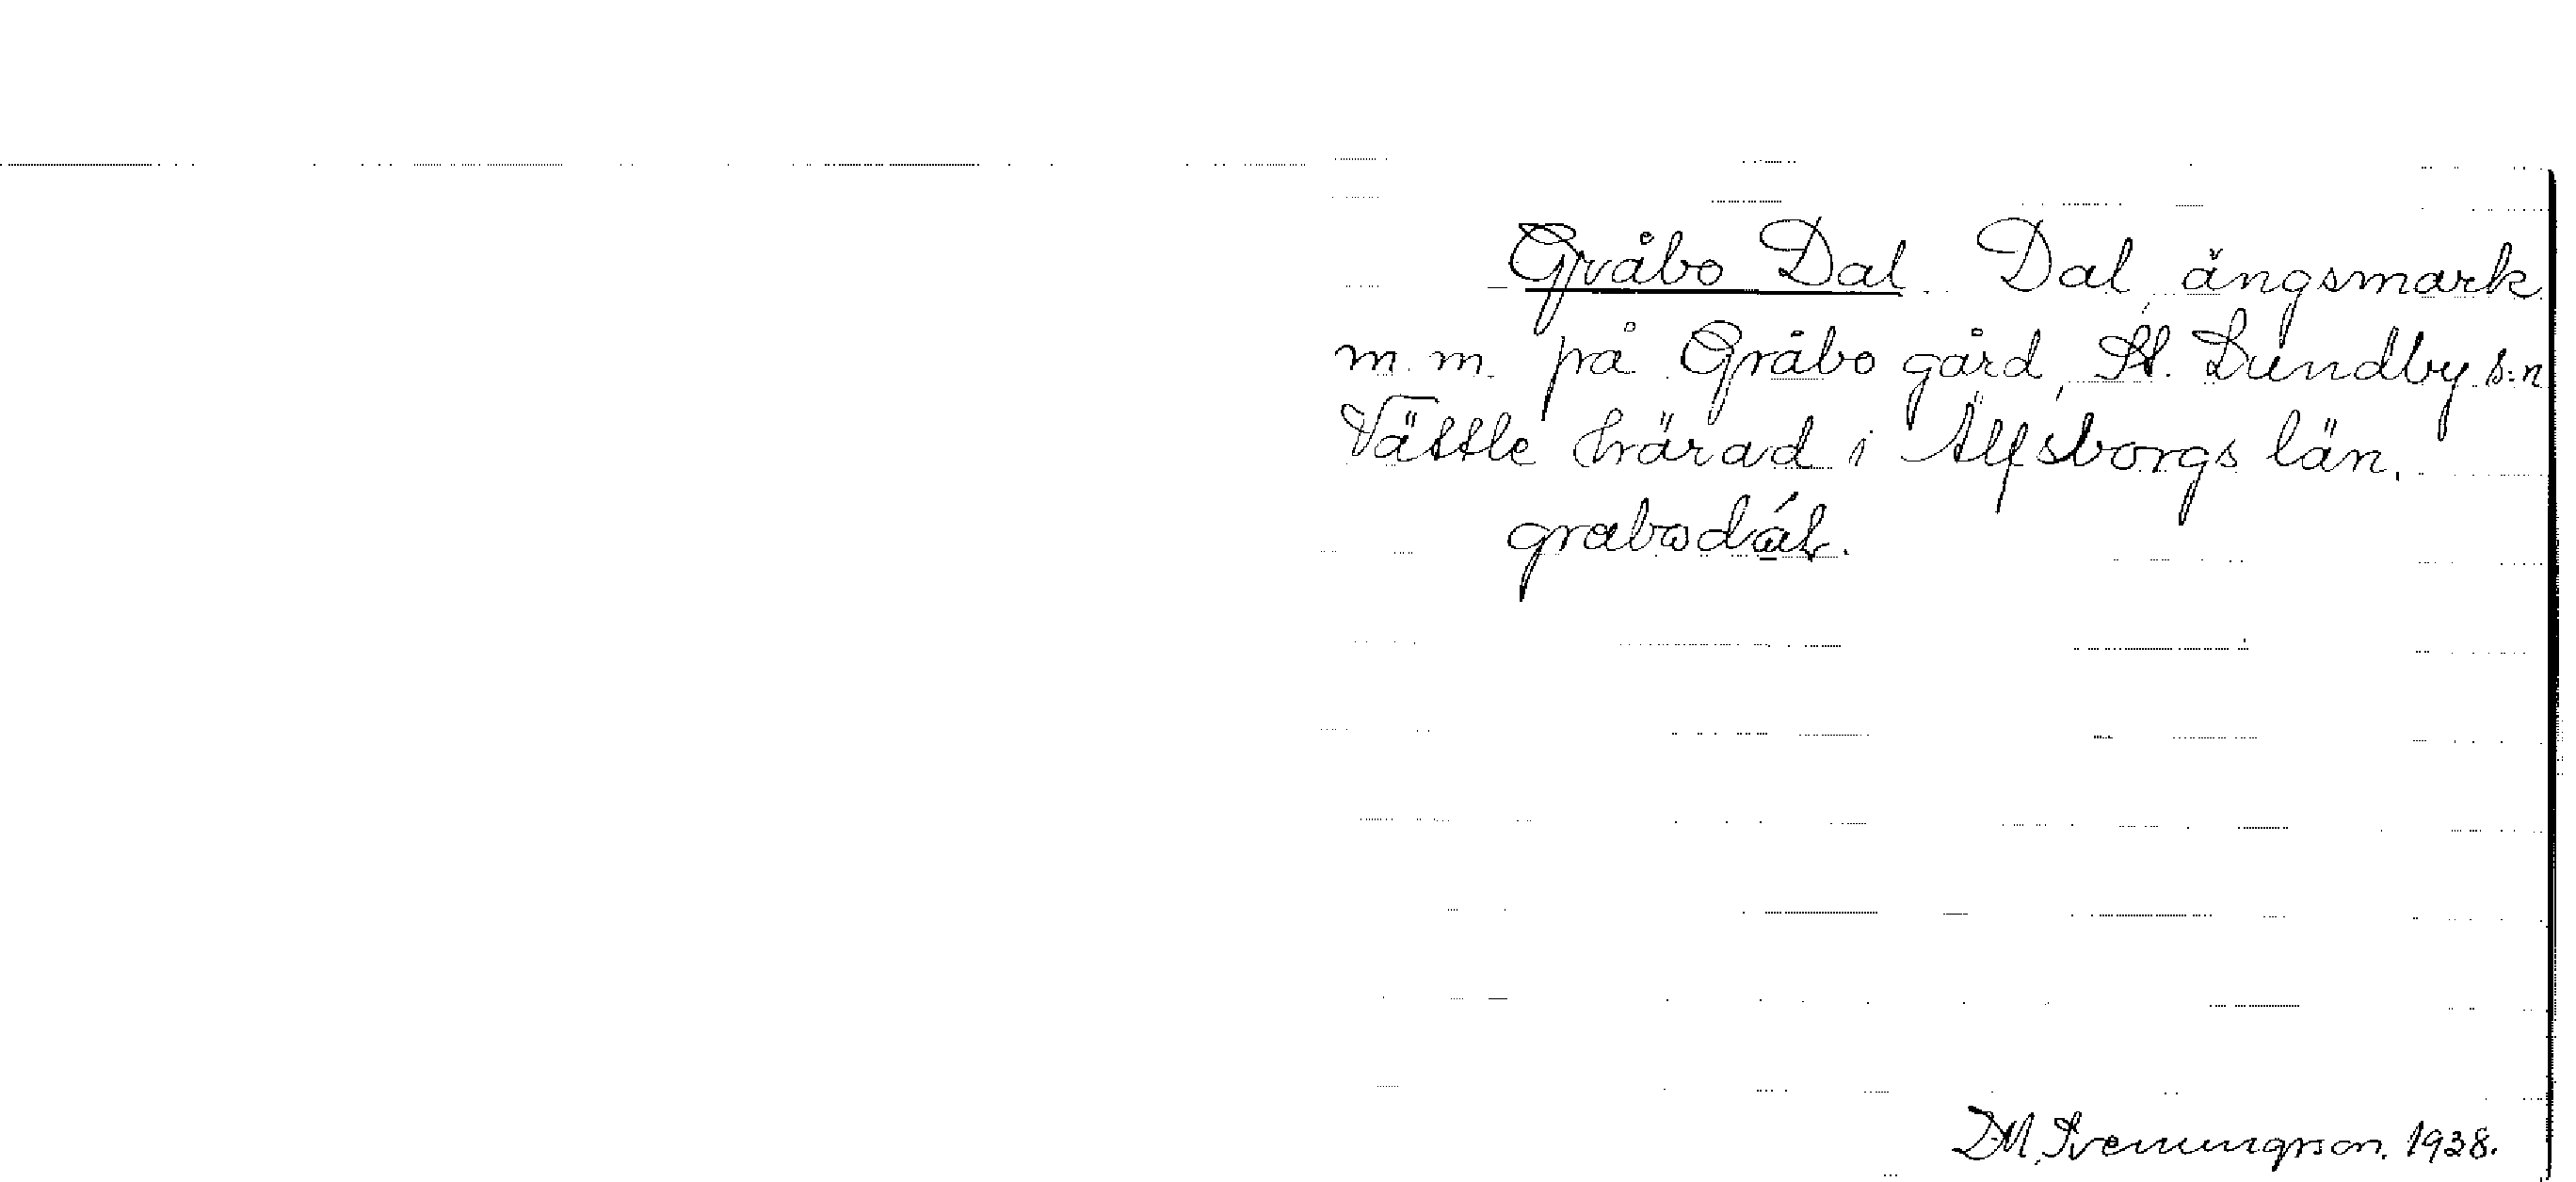 Gråbo Dal. Dal, ängsmark
m. m. på Gråbo gård, St. Lundby s:n
Vättle härad i Älfsborgs län.
D.M. Svenungsson. 1938.